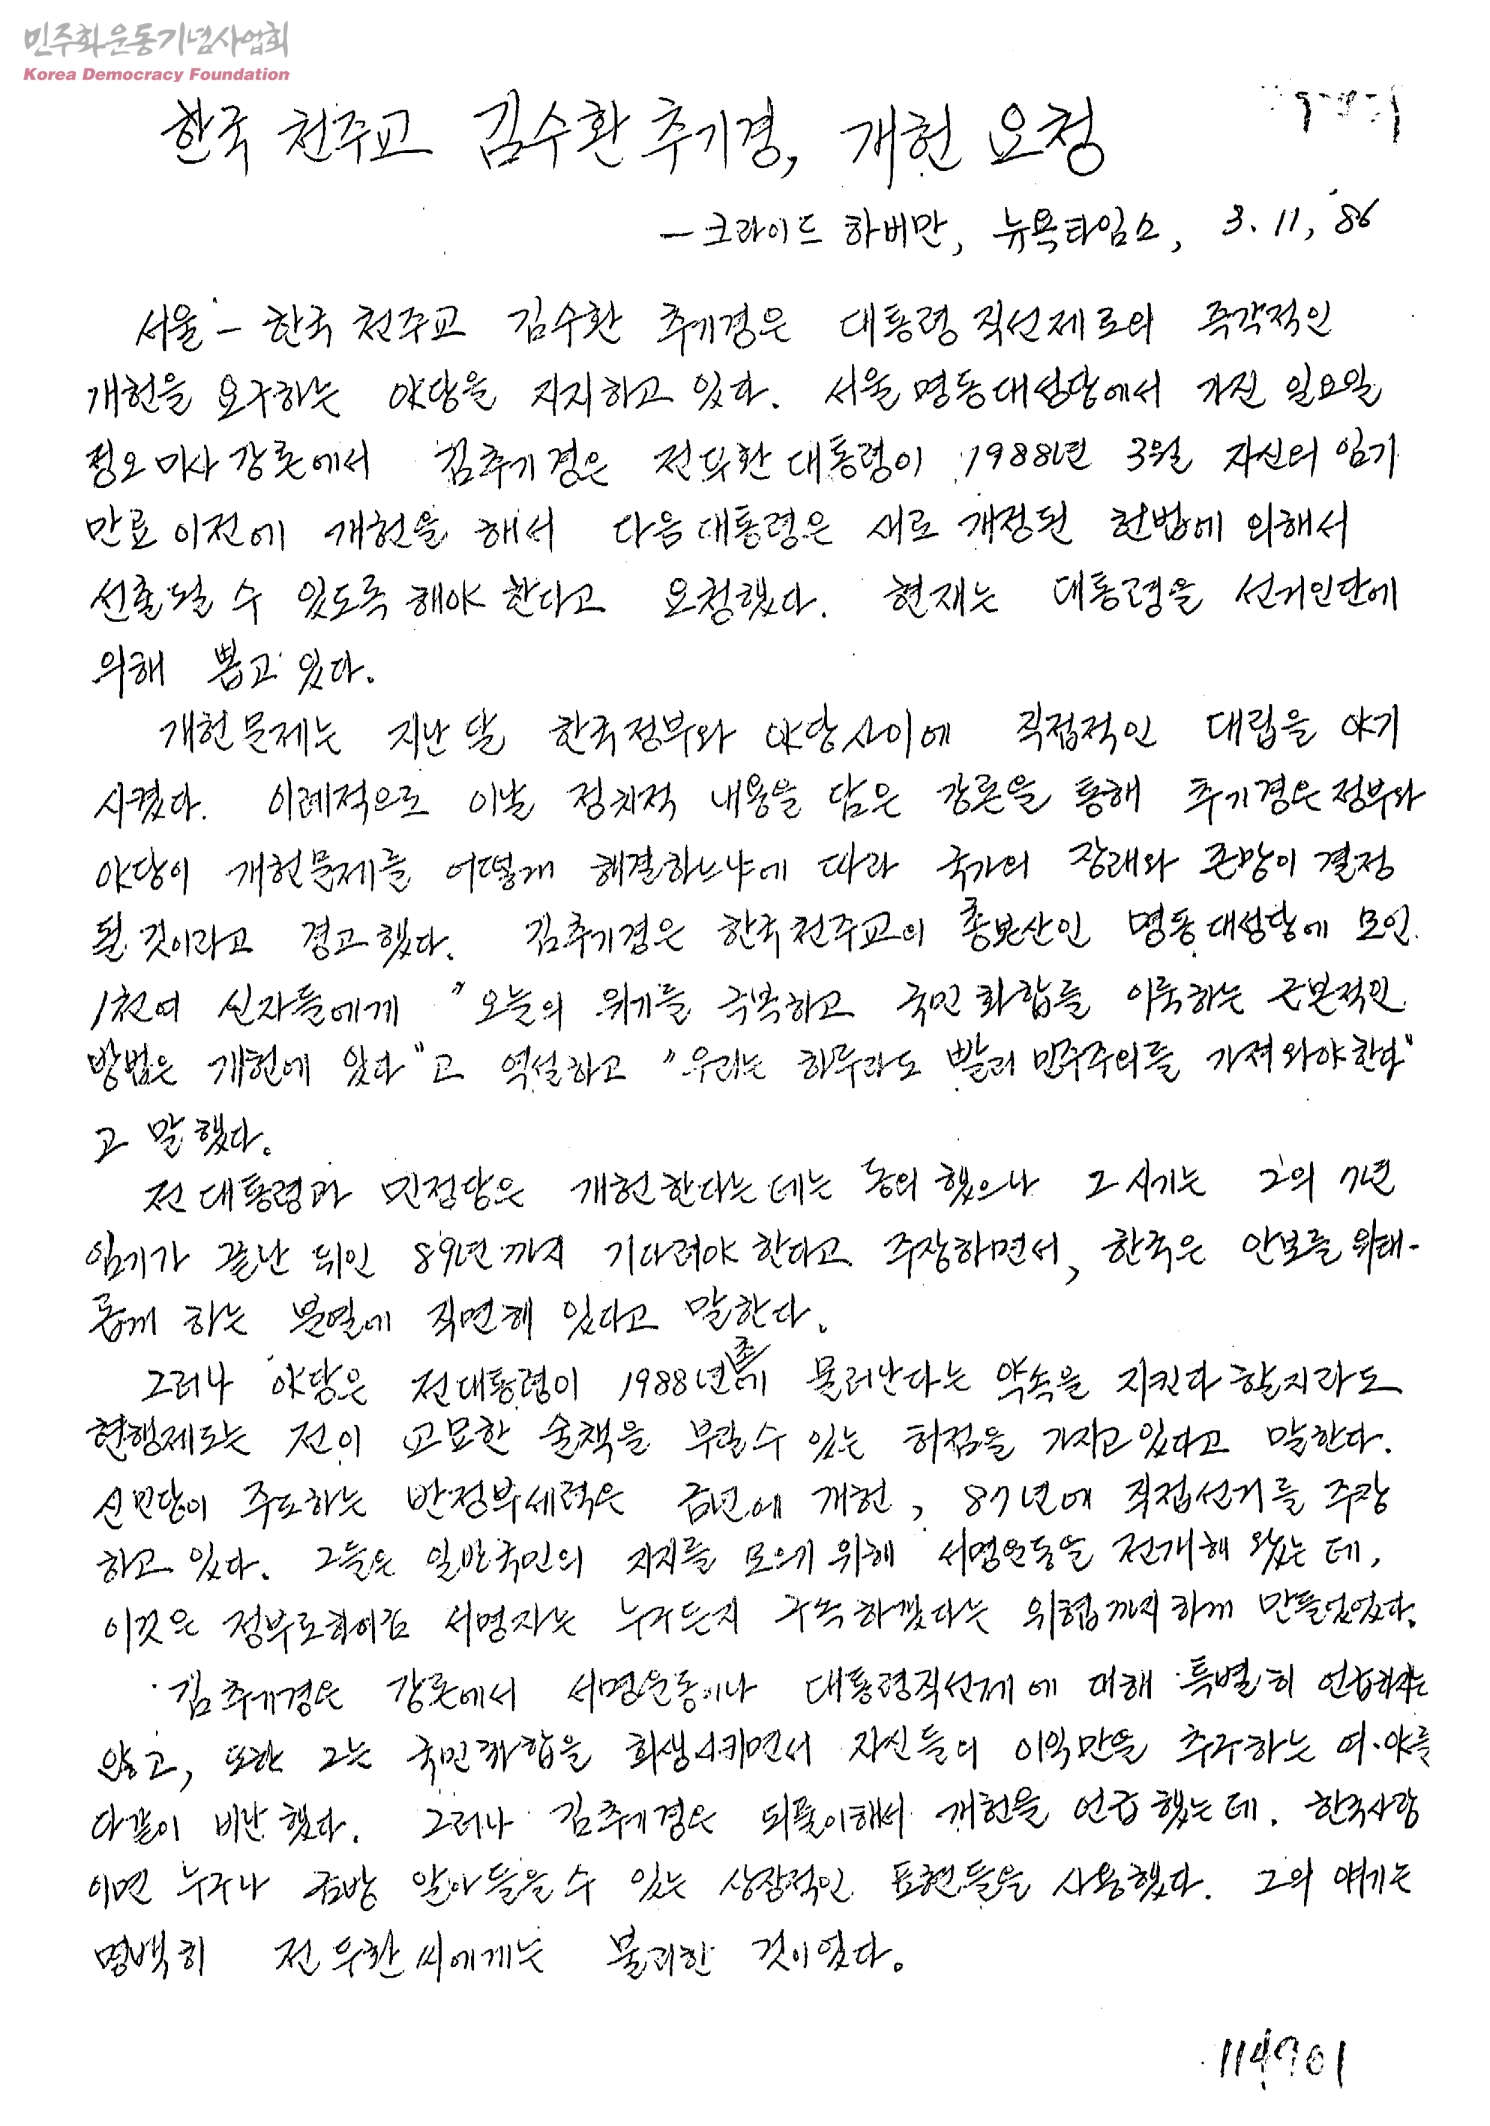 민주화운동기념사업회
Korea Democracy Foundation
한국 천주교 김수환 추기경, 개헌 요청
— 크라이드 하버만, 뉴욕타임스, 3. 11, '86
서울 – 한국 천주교 김수환 추기경은 대통령 직선제로의 즉각적인
개헌을 요구하는 야당을 지지하고 있다. 서울 명동대성당에서 가진 일요일
정오 미사 강론에서 김추기경은 전두환 대통령이 1988년 3월 자신의 임기
만료 이전에 개헌을 해서 다음 대통령은 새로 개정된 헌법에 의해서
선출될 수 있도록 해야 한다고 요청했다. 현재는 대통령을 선거인단에
의해 뽑고 있다.
개헌문제는 지난달 한국정부와 야당사이에 직접적인 대립을 야기
시켰다. 이례적으로 이날 정치적 내용을 담은 강론을 통해 추기경은 정부와
야당이 개헌문제를 어떻게 해결하느냐에 따라 국가의 장래와 존망이 결정
될 것이라고 경고했다. 김추기경은 한국천주교의 총본산인 명동대성당에 모인
1천여 신자들에게 "오늘의 위기를 극복하고 국민화합을 이룩하는 근본적인
방법은 개헌에 있다"고 역설하고 "우리는 하루라도 빨리 민주주의를 가져와야한다"
고 말했다.
전대통령과 민정당은 개헌한다는데는 동의했으나 그 시기는 그의 7년
임기가 끝난 뒤인 89년까지 기다려야 한다고 주장하면서, 한국은 안보를 위태-
롭게 하는 분열에 직면해 있다고 말한다.
그러나 야당은 전대통령이 1988년초에 물러난다는 약속을 지킨다 할지라도
현행제도는 전이 교묘한 술책을 부릴수 있는 허점을 가지고있다고 말한다.
신민당이 주도하는 반정부세력은 금년에 개헌, 87년에 직접선거를 주장
하고 있다. 그들은 일반국민의 지지를 모으기 위해 서명운동을 전개해 왔는데,
이것은 정부로하여금 서명자는 누구든지 구속하겠다는 위협까지하게 만들었었다.
김추기경은 강론에서 서명운동이나 대통령직선제에 대해 특별히 언급하지는
않고, 또한 그는 국민화합을 희생시키면서 자신들의 이익만을 추구하는 여·야를
다같이 비난했다. 그러나 김추기경은 되풀이해서 개헌을 언급했는데. 한국사람
이면 누구나 금방 알아들을수 있는 상징적인 표현들을 사용했다. 그의 얘기는
명백히 전두환씨에게는 불쾌한 것이었다.
114701